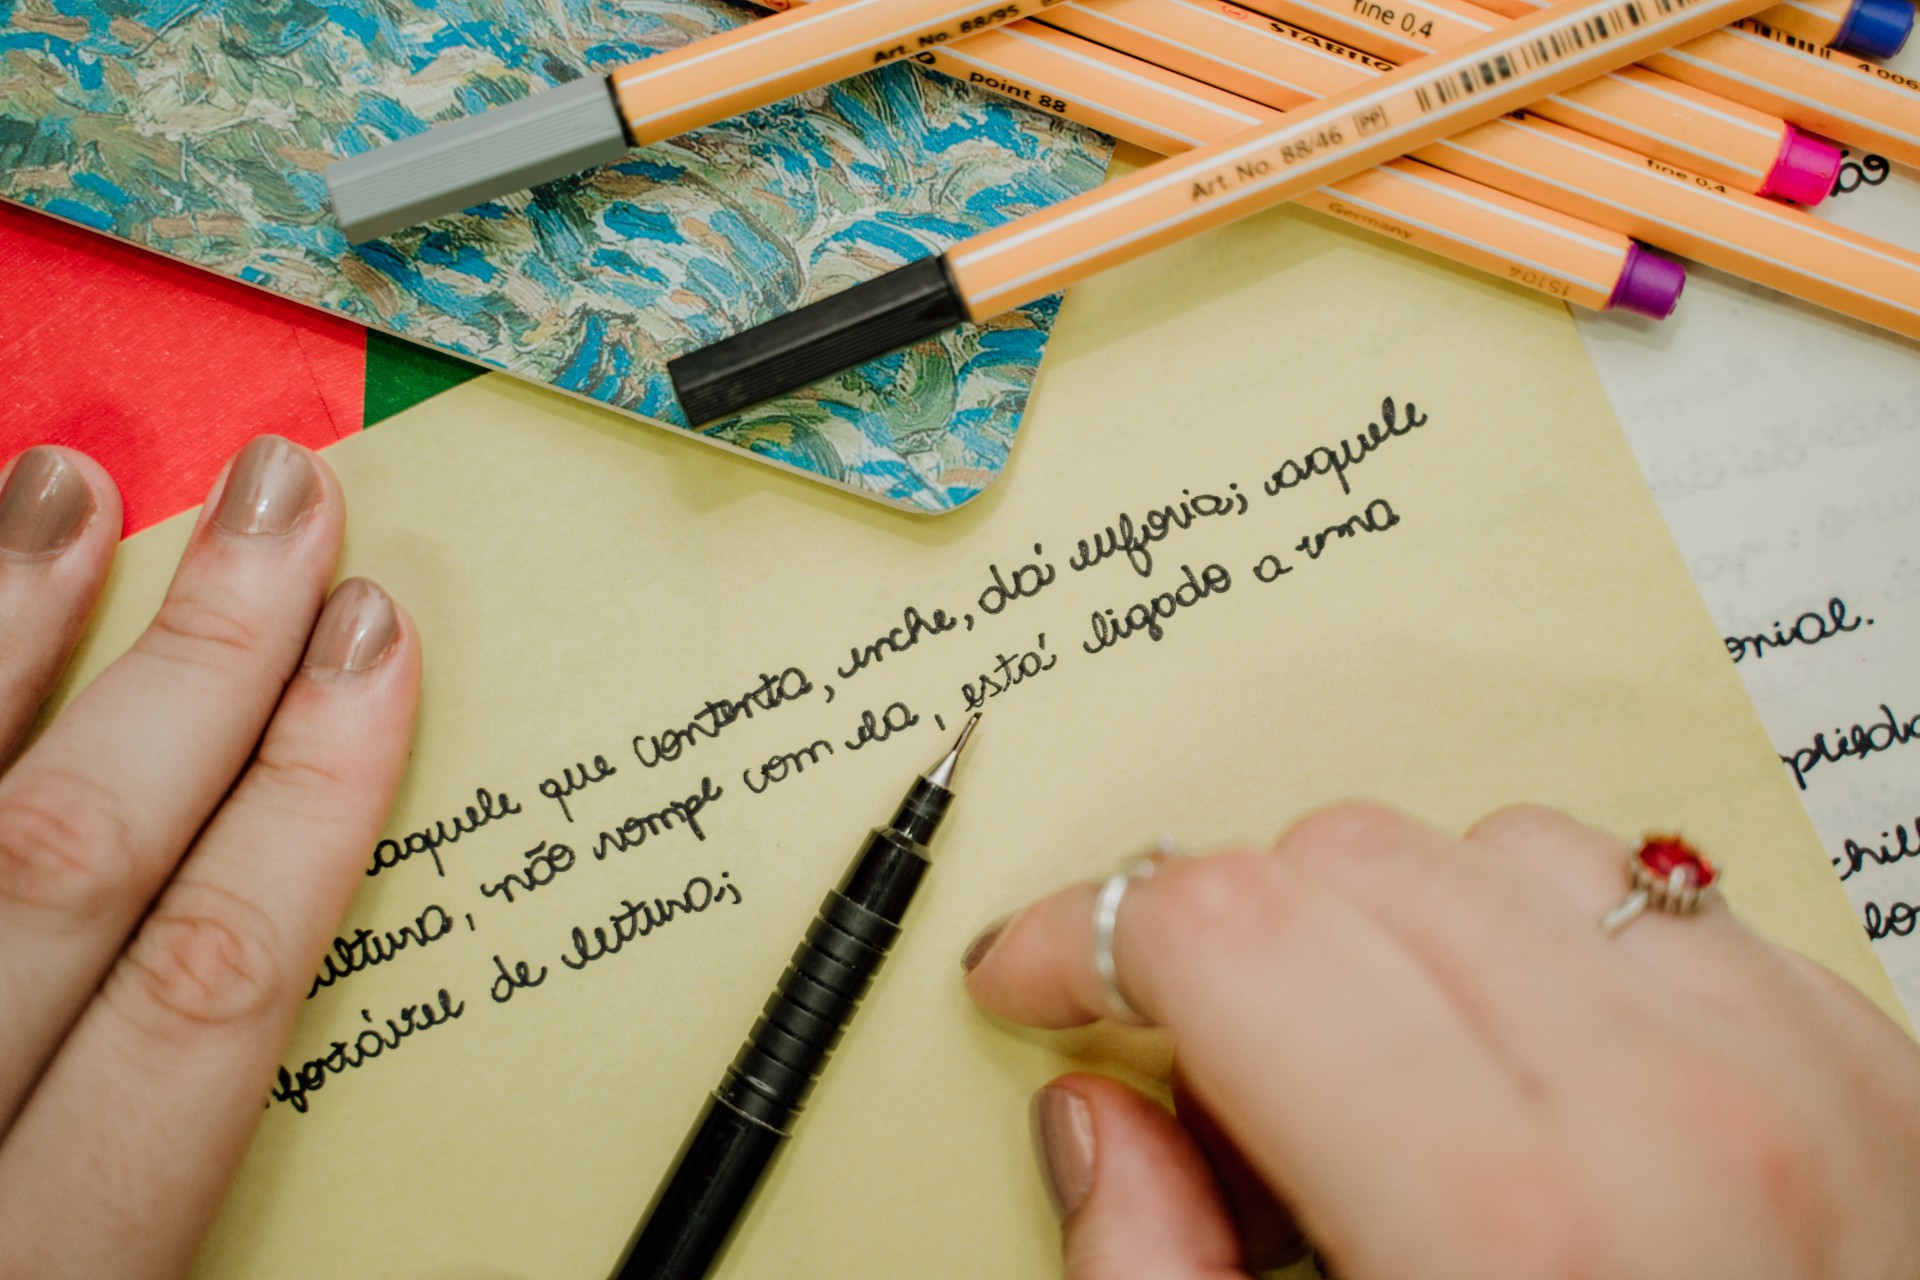 Art. No. 88/95
point 88
STABILO
fine 0,4
Art. No. 88/46 PP
fine 0,4
Germany
15104
4 006
aquele que contenta, enche, dá euforia; aquele
ultura, não rompe com ela, está ligado a uma
nfortável de leitura;
onial.